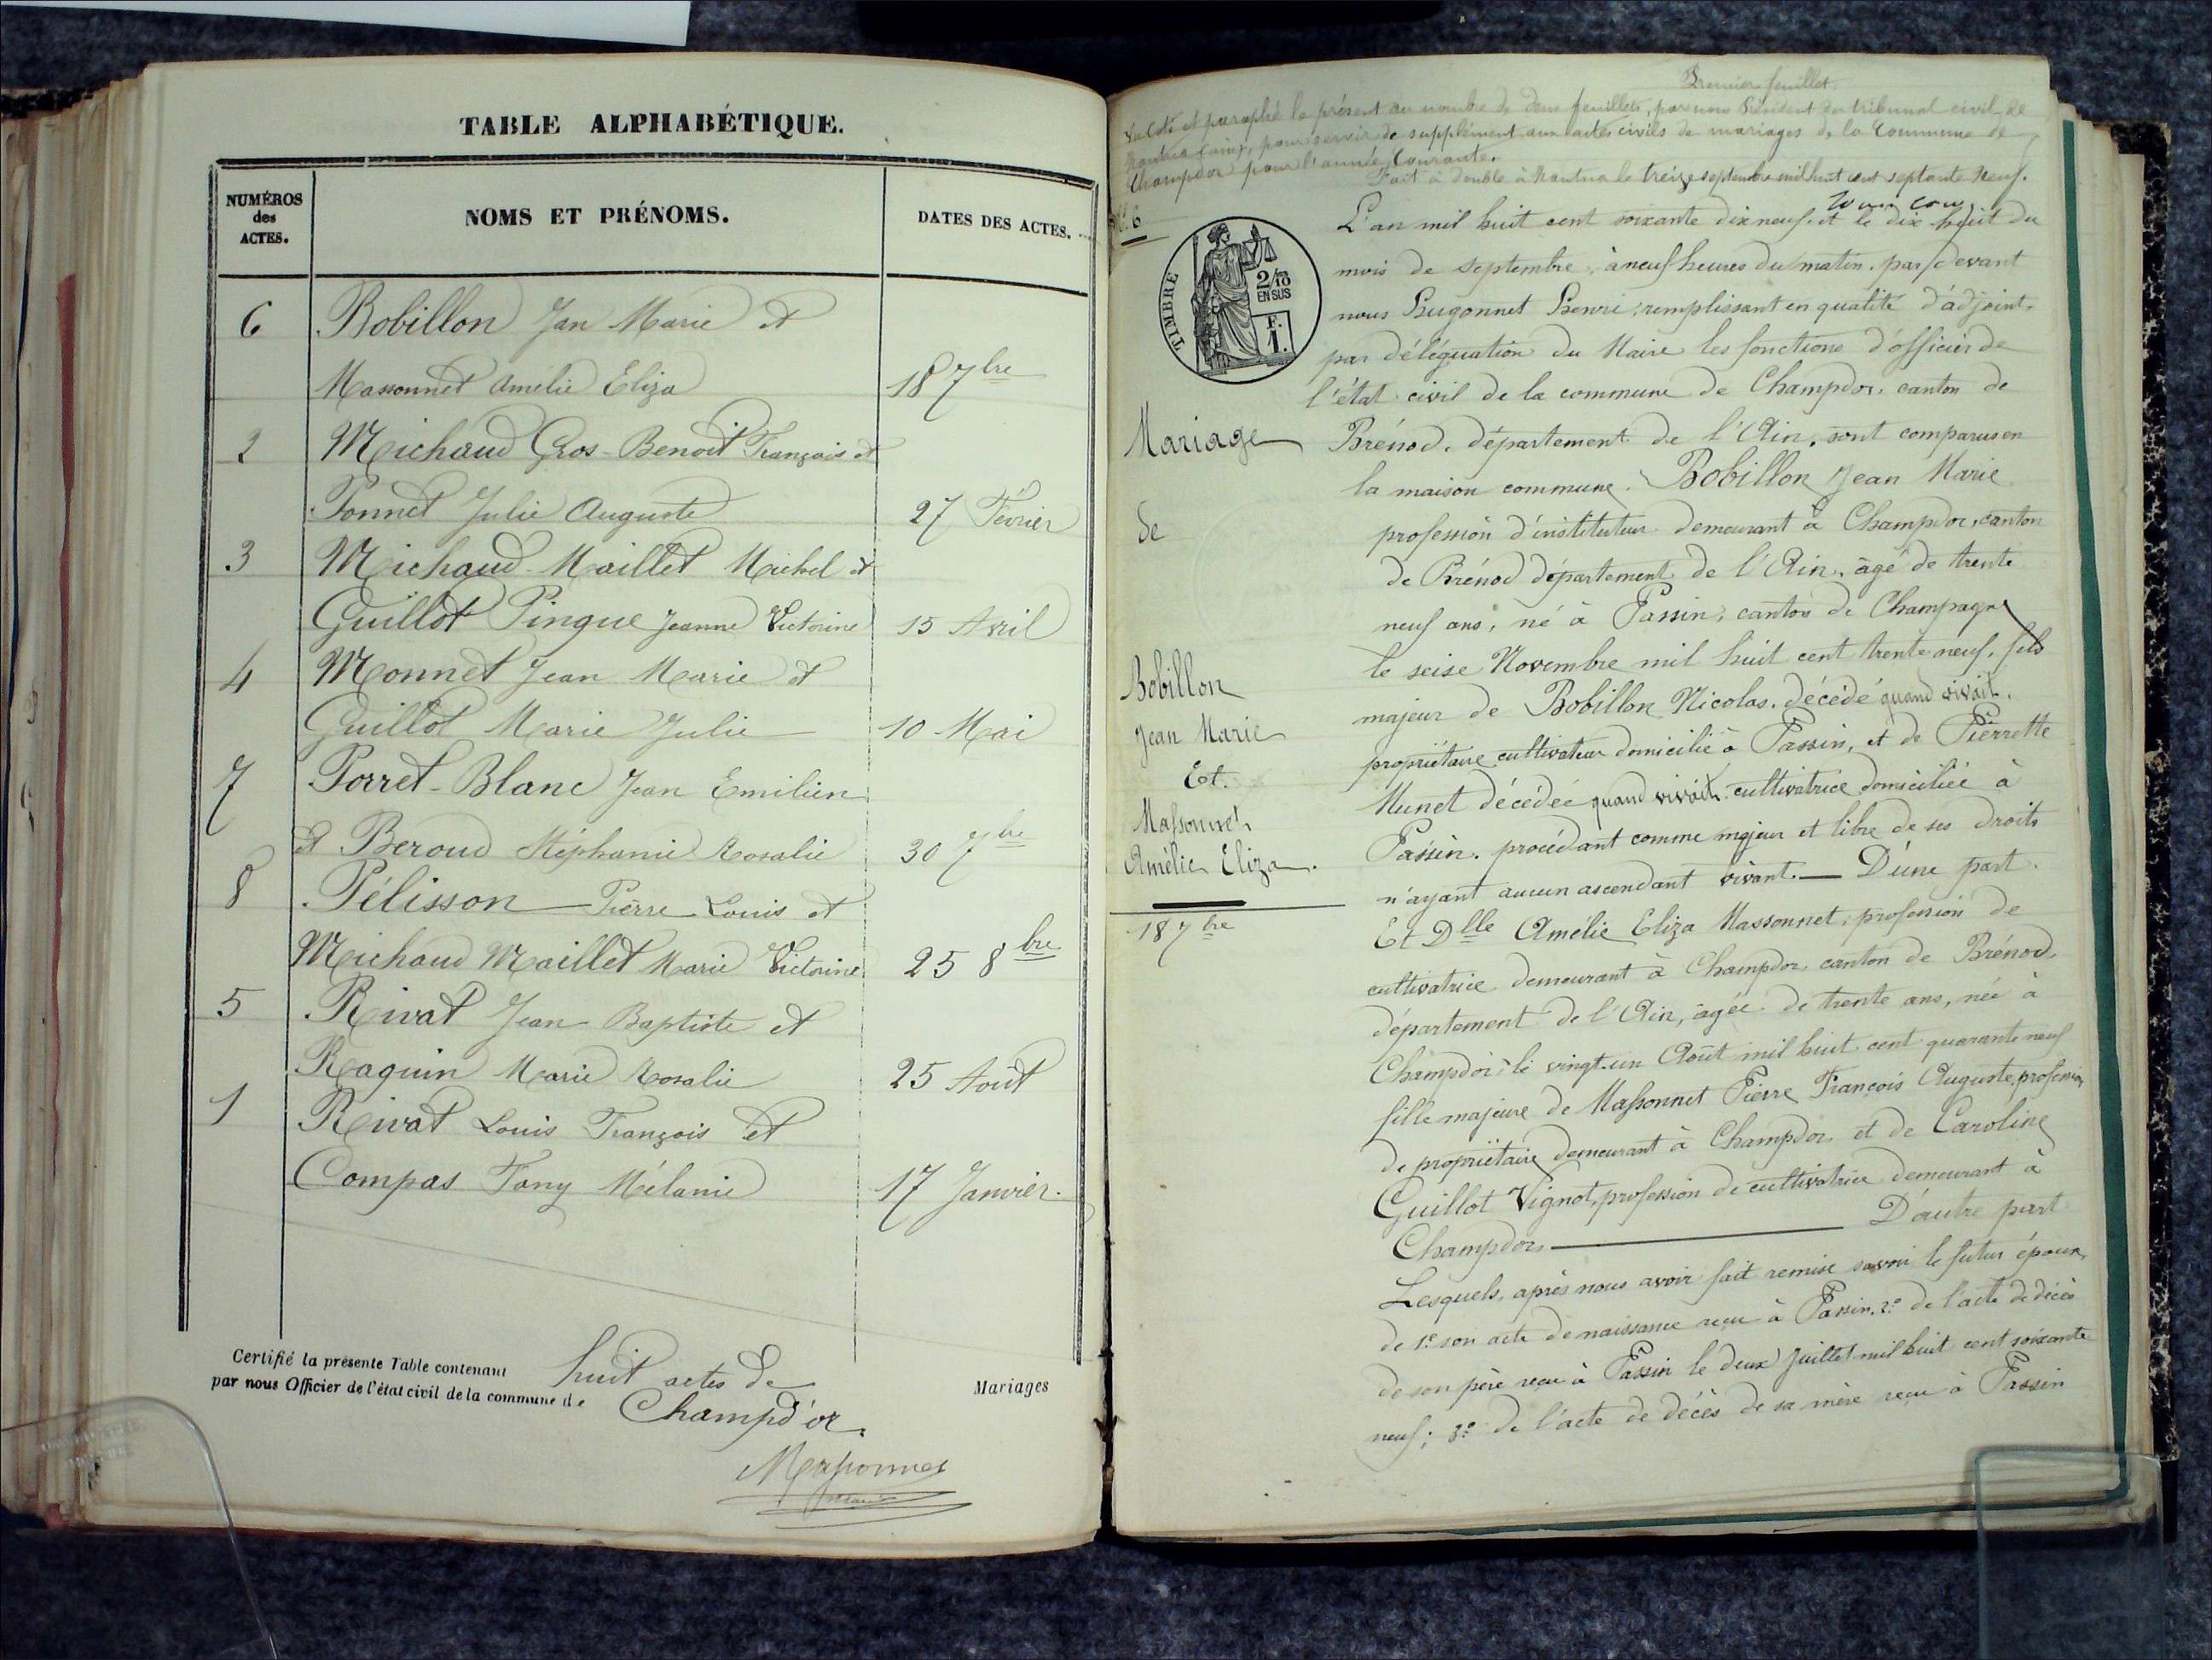 TABLE ALPHABÉTIQUE.
NUMÉROS
des
ACTES.
NOMS ET PRÉNOMS.
DATES DES ACTES.
6 Bobillon Jan Marie et
Massonnet Amélie Eliza 18 7bre
2 Michaud Gros-Benoit François et
Ponnet Julie Auguste 27 Février
3 Michaud-Maillet Michel et
Guillot Pingue Jeanne Victorine 15 Avril
4 Monnet Jean Marie et
Guillot Marie Julie 10 Mai
7 Porret-Blanc Jean Emilien
et Beroud Stéphanie Rosalie 30 7bre
8 Pélisson Pierre Louis et
Michaud Maillet Marie Victorine 25 8bre
5 Rivat Jean Baptiste et
Raquin Marie Rosalie 25 Août
1 Rivat Louis François et
Compas Fany Mélanie 17 Janvier.
Certifié la présente Table contenant huit actes de Mariages
par nous Officier de l'état civil de la commune de Champd'or.
Massonnet
Premier feuillet.
Vu Coté et paraphé le présent au nombre de deux feuillets, par nous Président du tribunal civil de
Nantua (ain), pour servir de supplément aux actes civils de mariages de la Commune de
Champdor pour l'année Courante.
Fait à double à Nantua le treize septembre mil huit cent septante neuf.
N° 6
TIMBRE
2/10
EN SUS
F.
1.
L'an mil huit cent soixante dix neuf et le dix-huit du
mois de septembre, à neuf heures du matin. par devant
nous Hugonnet Henri, remplissant en qualité d'adjoint.
par déléguation du Maire les fonctions d'officier de
l'état civil de la commune de Champdor, canton de
Mariage
Brénod, département de l'Ain, sont comparus en
la maison commune. Bobillon Jean Marie
de
profession d'instituteur demeurant à Champdor, canton
de Brénod département de l'Ain, âgé de trente
neuf ans, né à Passin, canton de Champagne
le seise Novembre mil huit cent trente neuf, fils
Bobillon
Jean Marie
Et
Massonnet
Amélie Eliza.
18 7bre
majeur de Bobillon Nicolas, décédé quand vivait.
propriétaire cultivateur domicilié à Passin, et de Pierrette
Munet décédée quand vivait. cultivatrice domiciliée à
Passin. procédant comme majeur et libre de ses droits
n'ayant aucun ascendant vivant. — D'une part.
Et Dlle Amélie Eliza Massonnet, profession de
cultivatrice demeurant à Champdor, canton de Brénod,
département de l'Ain, âgée de trente ans, née à
Champdor, le vingt-un Août mil huit cent quarante neuf
fille majeure de Massonnet Pierre François Auguste, profession
de propriétaire demeurant à Champdor et de Caroline
Guillot Vignot, profession de cultivatrice demeurant à
Champdor — D'autre part
Lesquels, après nous avoir fait remise savoir le futur époux,
de 1° son acte de naissance reçu à Passin. 2° de l'acte de décès
de son père reçu à Passin le deux Juillet mil huit cent soixante
neuf; 3° de l'acte de décès de sa mère reçu à Passin